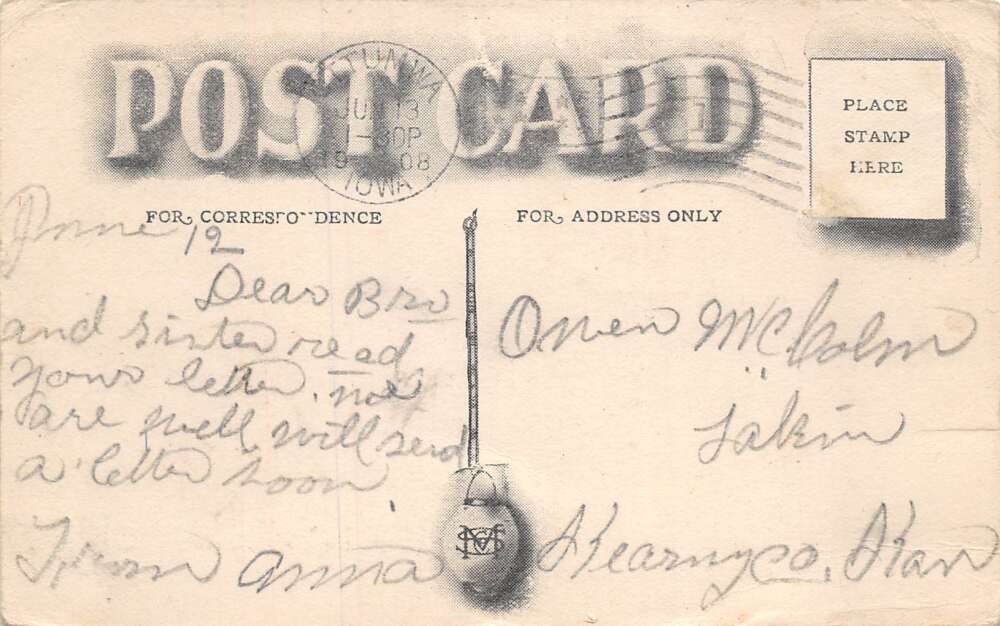 POST CARD
OTTUMWA
JUN 13
1-30P
1908
IOWA
PLACE
STAMP
HERE
FOR CORRESPONDENCE
FOR ADDRESS ONLY
June 12
Dear Bro
and sister read
your letter. we
are well will send
a letter soon
From Anna
Owen McColm
Lakin
Kearny co. Kan